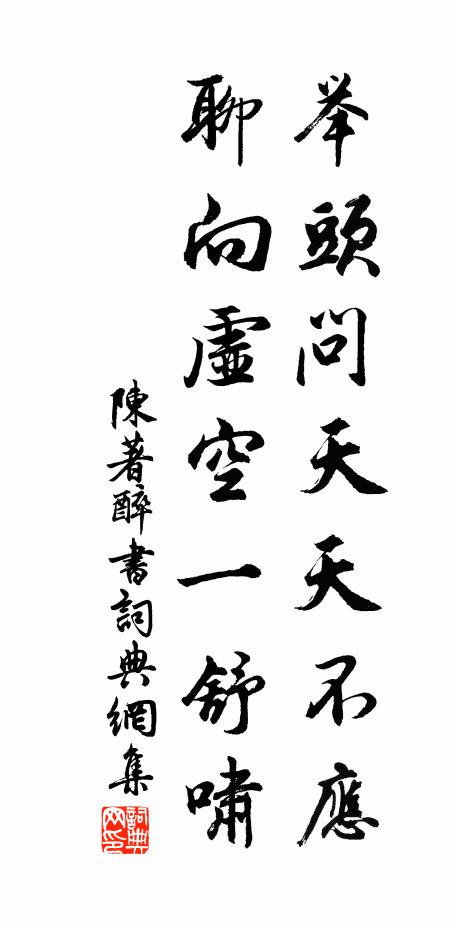 举頭問天天不應
聊向虛空一舒嘯
陳著醉書詞典網集
詞典
网印